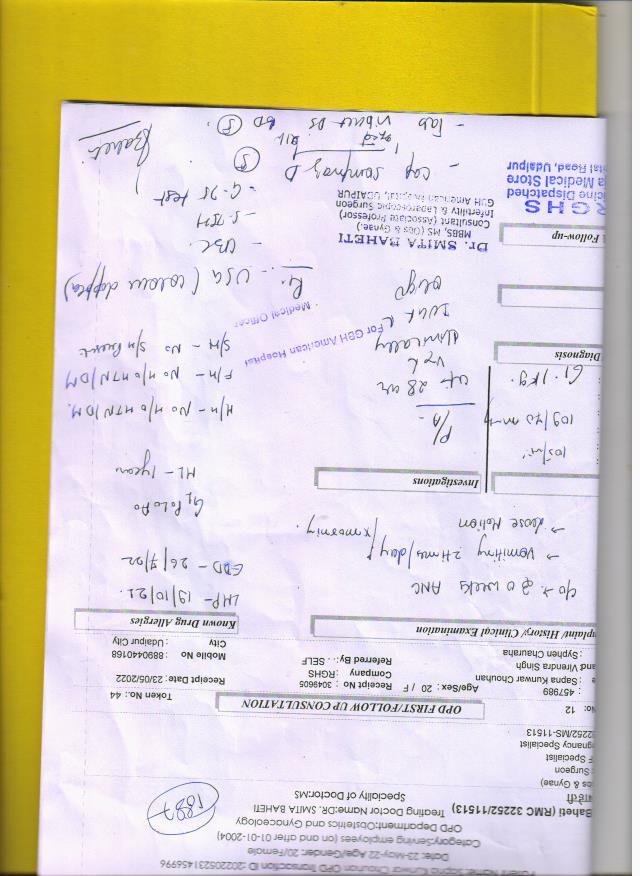 Patient Name: Sapna Kunwar Chouhan OPD Transaction ID :2022052231456996
Date: 23-May-22 Age/Gender: 20/Female
Category:Serving employees (on and after 01-01-2004)
OPD Department:Obstetrics and Gynaecology
Treating Doctor Name:DR. SMITA BAHETI
Speciality of Doctor:MS
1887
Baheti (RMC 32252/11513)
s & Gynae)
Surgeon
F Specialist
gnancy Specialist
32252/MS-11513
OPD FIRST/FOLLOW UP CONSULTATION
No: 12
Token No.: 44
: 457989
Age/Sex: 20 / F
Receipt No : 3049605
Receipt Date : 23/05/2022
: Sapna Kunwar Chouhan
Company : RGHS
Mobile No : 8890440168
and Virendra Singh
Referred By: . . SELF
City : Udaipur City
: Syphen Chauraha
mplain/ History/ Clinical Examination
Known Drug Allergies
weeks ANC
LMP- 19/10/21
→ Vomiting 2 times/day
EDD- 26/7/22
→ Loose Motion
x morning
G1 P0 L0 A0
ML- 1 year
Investigations
105/m
109/70 mmHg
61.1 kg.
P/A-
28 wk
Clinically
IUGR
Oligo
H/H- No H/o HTN/DM.
F/H- No H/o HTN/DM
S/H- No S/H Present
Diagnosis
For GBH American Hospital
Medical Officer
USG (colour doppler)
- CBC
- S. TSH
Follow-up
Dr. SMITA BAHETI
MBBS, MS (Obs & Gynae.)
Consultant (Associate Professor)
Infertility & Laparoscopic Surgeon
GBH American Hospital, UDAIPUR
RGHS
icine Dispatched
a Medical Store
ital Road, Udaipur
- Cap D
5
- Tab BD
5
Baheti